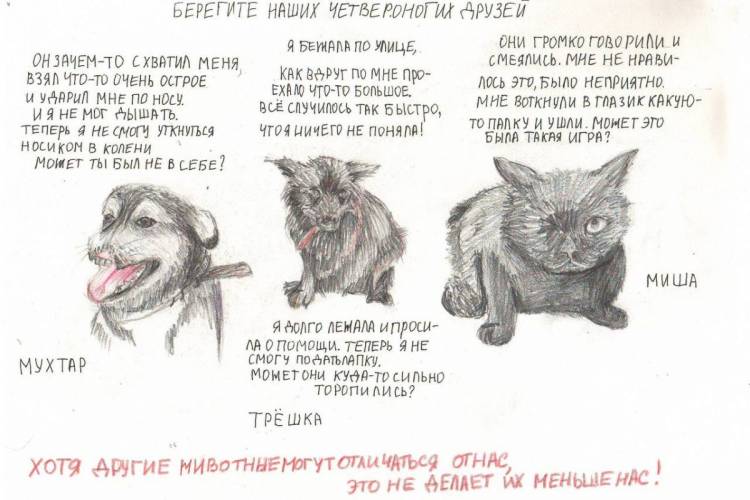 БЕРЕГИТЕ НАШИХ ЧЕТВЕРОНОГИХ ДРУЗЕЙ
ОН ЗАЧЕМ-ТО СХВАТИЛ МЕНЯ,
ВЗЯЛ ЧТО-ТО ОЧЕНЬ ОСТРОЕ
И УДАРИЛ МНЕ ПО НОСУ.
И Я НЕ МОГ ДЫШАТЬ.
ТЕПЕРЬ Я НЕ СМОГУ УТКНУТЬСЯ
НОСИКОМ В КОЛЕНИ
МОЖЕТ ТЫ БЫЛ НЕ В СЕБЕ?
МУХТАР
Я БЕЖАЛА ПО УЛИЦЕ,
КАК ВДРУГ ПО МНЕ ПРО-
ЕХАЛО ЧТО-ТО БОЛЬШОЕ.
ВСЁ СЛУЧИЛОСЬ ТАК БЫСТРО,
ЧТО Я НИЧЕГО НЕ ПОНЯЛА!
Я ДОЛГО ЛЕЖАЛА И ПРОСИ-
ЛА О ПОМОЩИ. ТЕПЕРЬ Я НЕ
СМОГУ ПОДАТЬ ЛАПКУ.
МОЖЕТ ОНИ КУДА-ТО СИЛЬНО
ТОРОПИЛИСЬ?
ТРЁШКА
ОНИ ГРОМКО ГОВОРИЛИ И
СМЕЯЛИСЬ. МНЕ НЕ НРАВИ-
ЛОСЬ ЭТО, БЫЛО НЕПРИЯТНО.
МНЕ ВОТКНУЛИ В ГЛАЗИК КАКУЮ-
ТО ПАЛКУ И УШЛИ. МОЖЕТ ЭТО
БЫЛА ТАКАЯ ИГРА?
МИША
ХОТЯ ДРУГИЕ ЖИВОТНЫЕ МОГУТ ОТЛИЧАТЬСЯ ОТ НАС,
ЭТО НЕ ДЕЛАЕТ ИХ МЕНЬШЕ НАС!